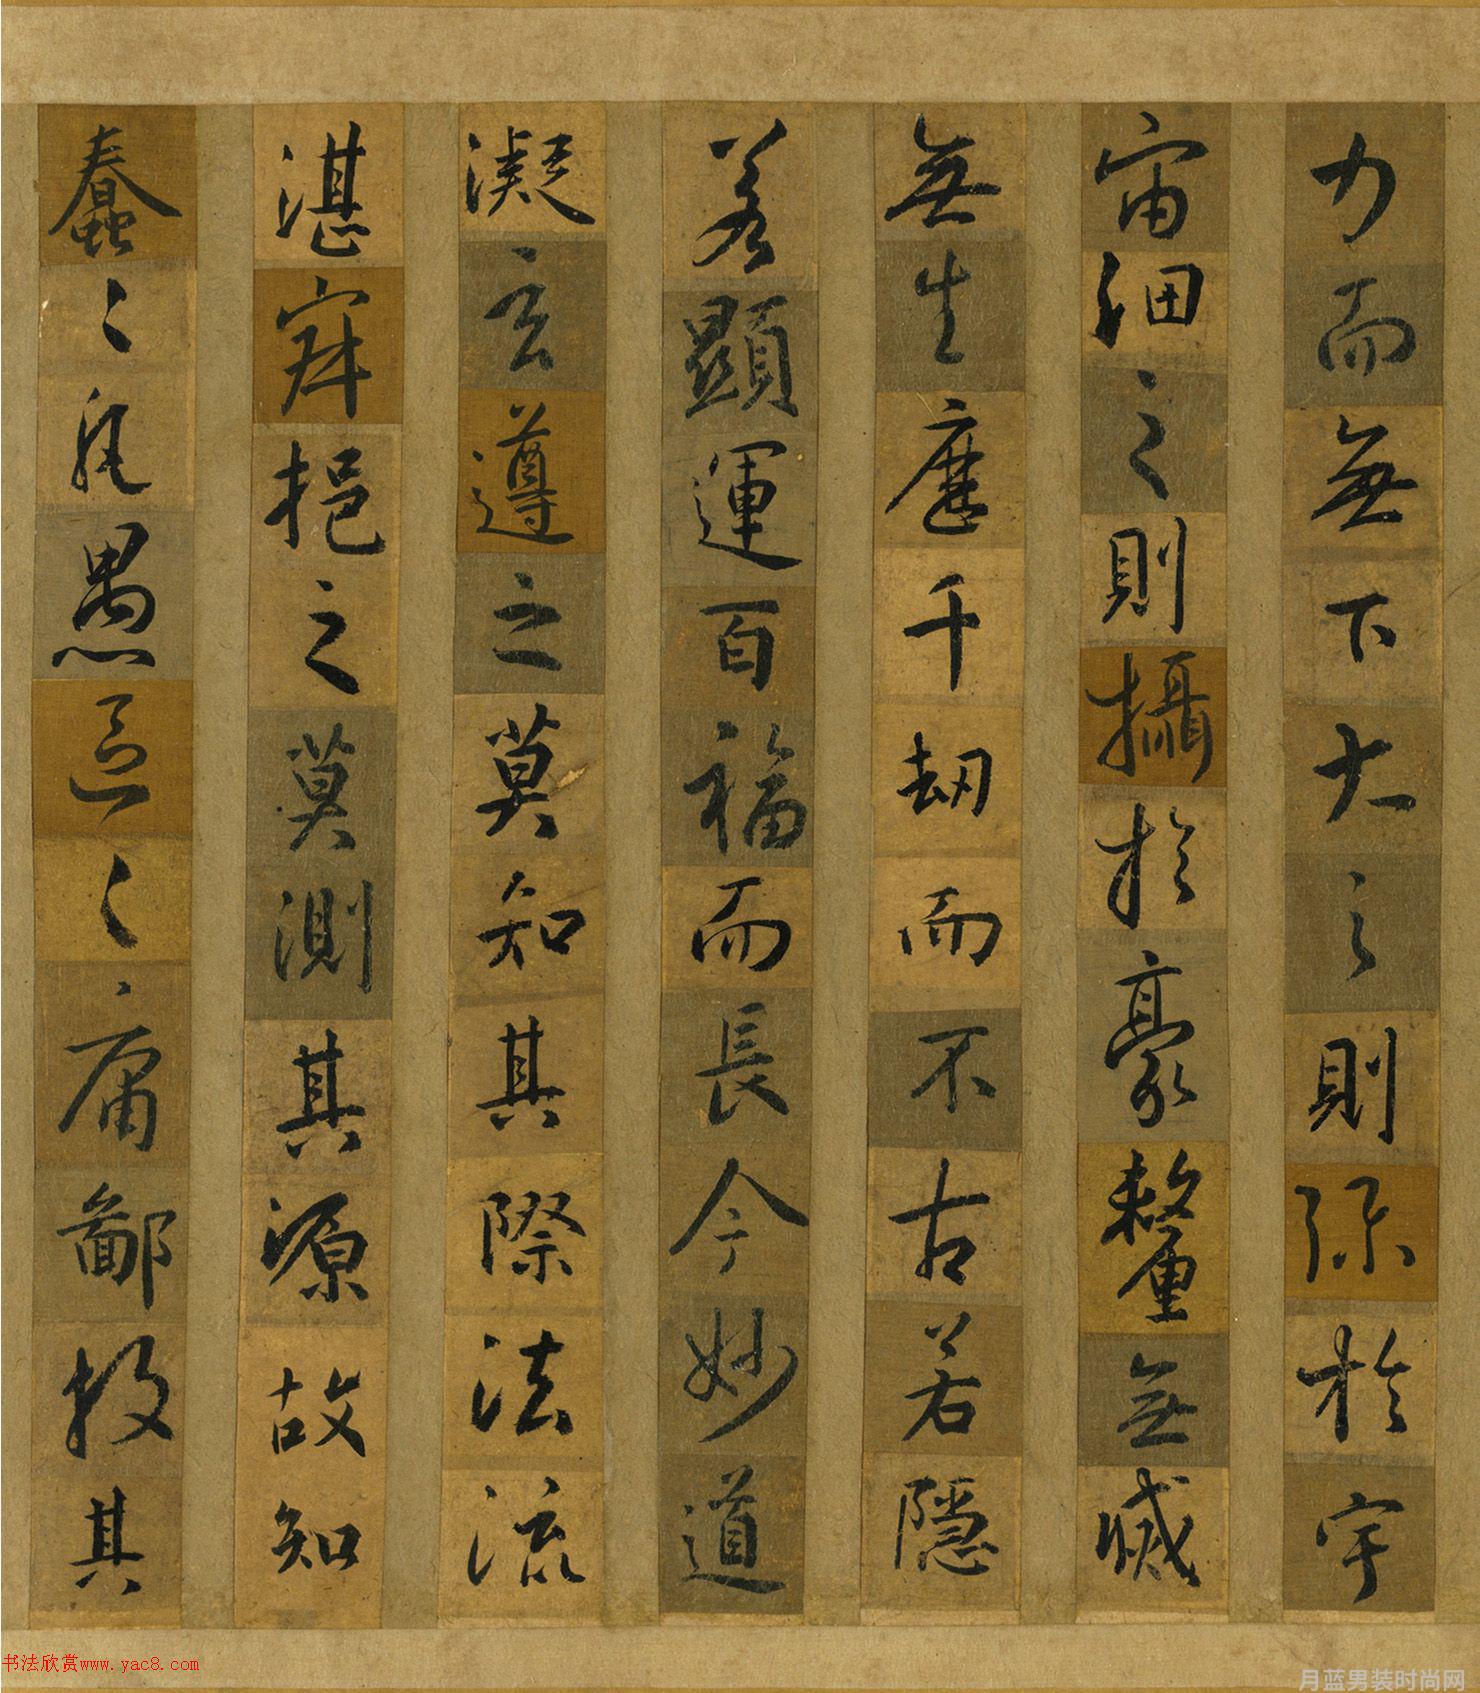 力而無下大之則弥於宇
宙細之則攝於豪釐無滅
無生歷千劫而不古若隱
若顯運百福而長今妙道
凝玄遵之莫知其際法流
湛寂挹之莫測其源故知
蠢々凡愚區々庸鄙投其
书法欣赏www.yac8.com
月蓝男装时尚网